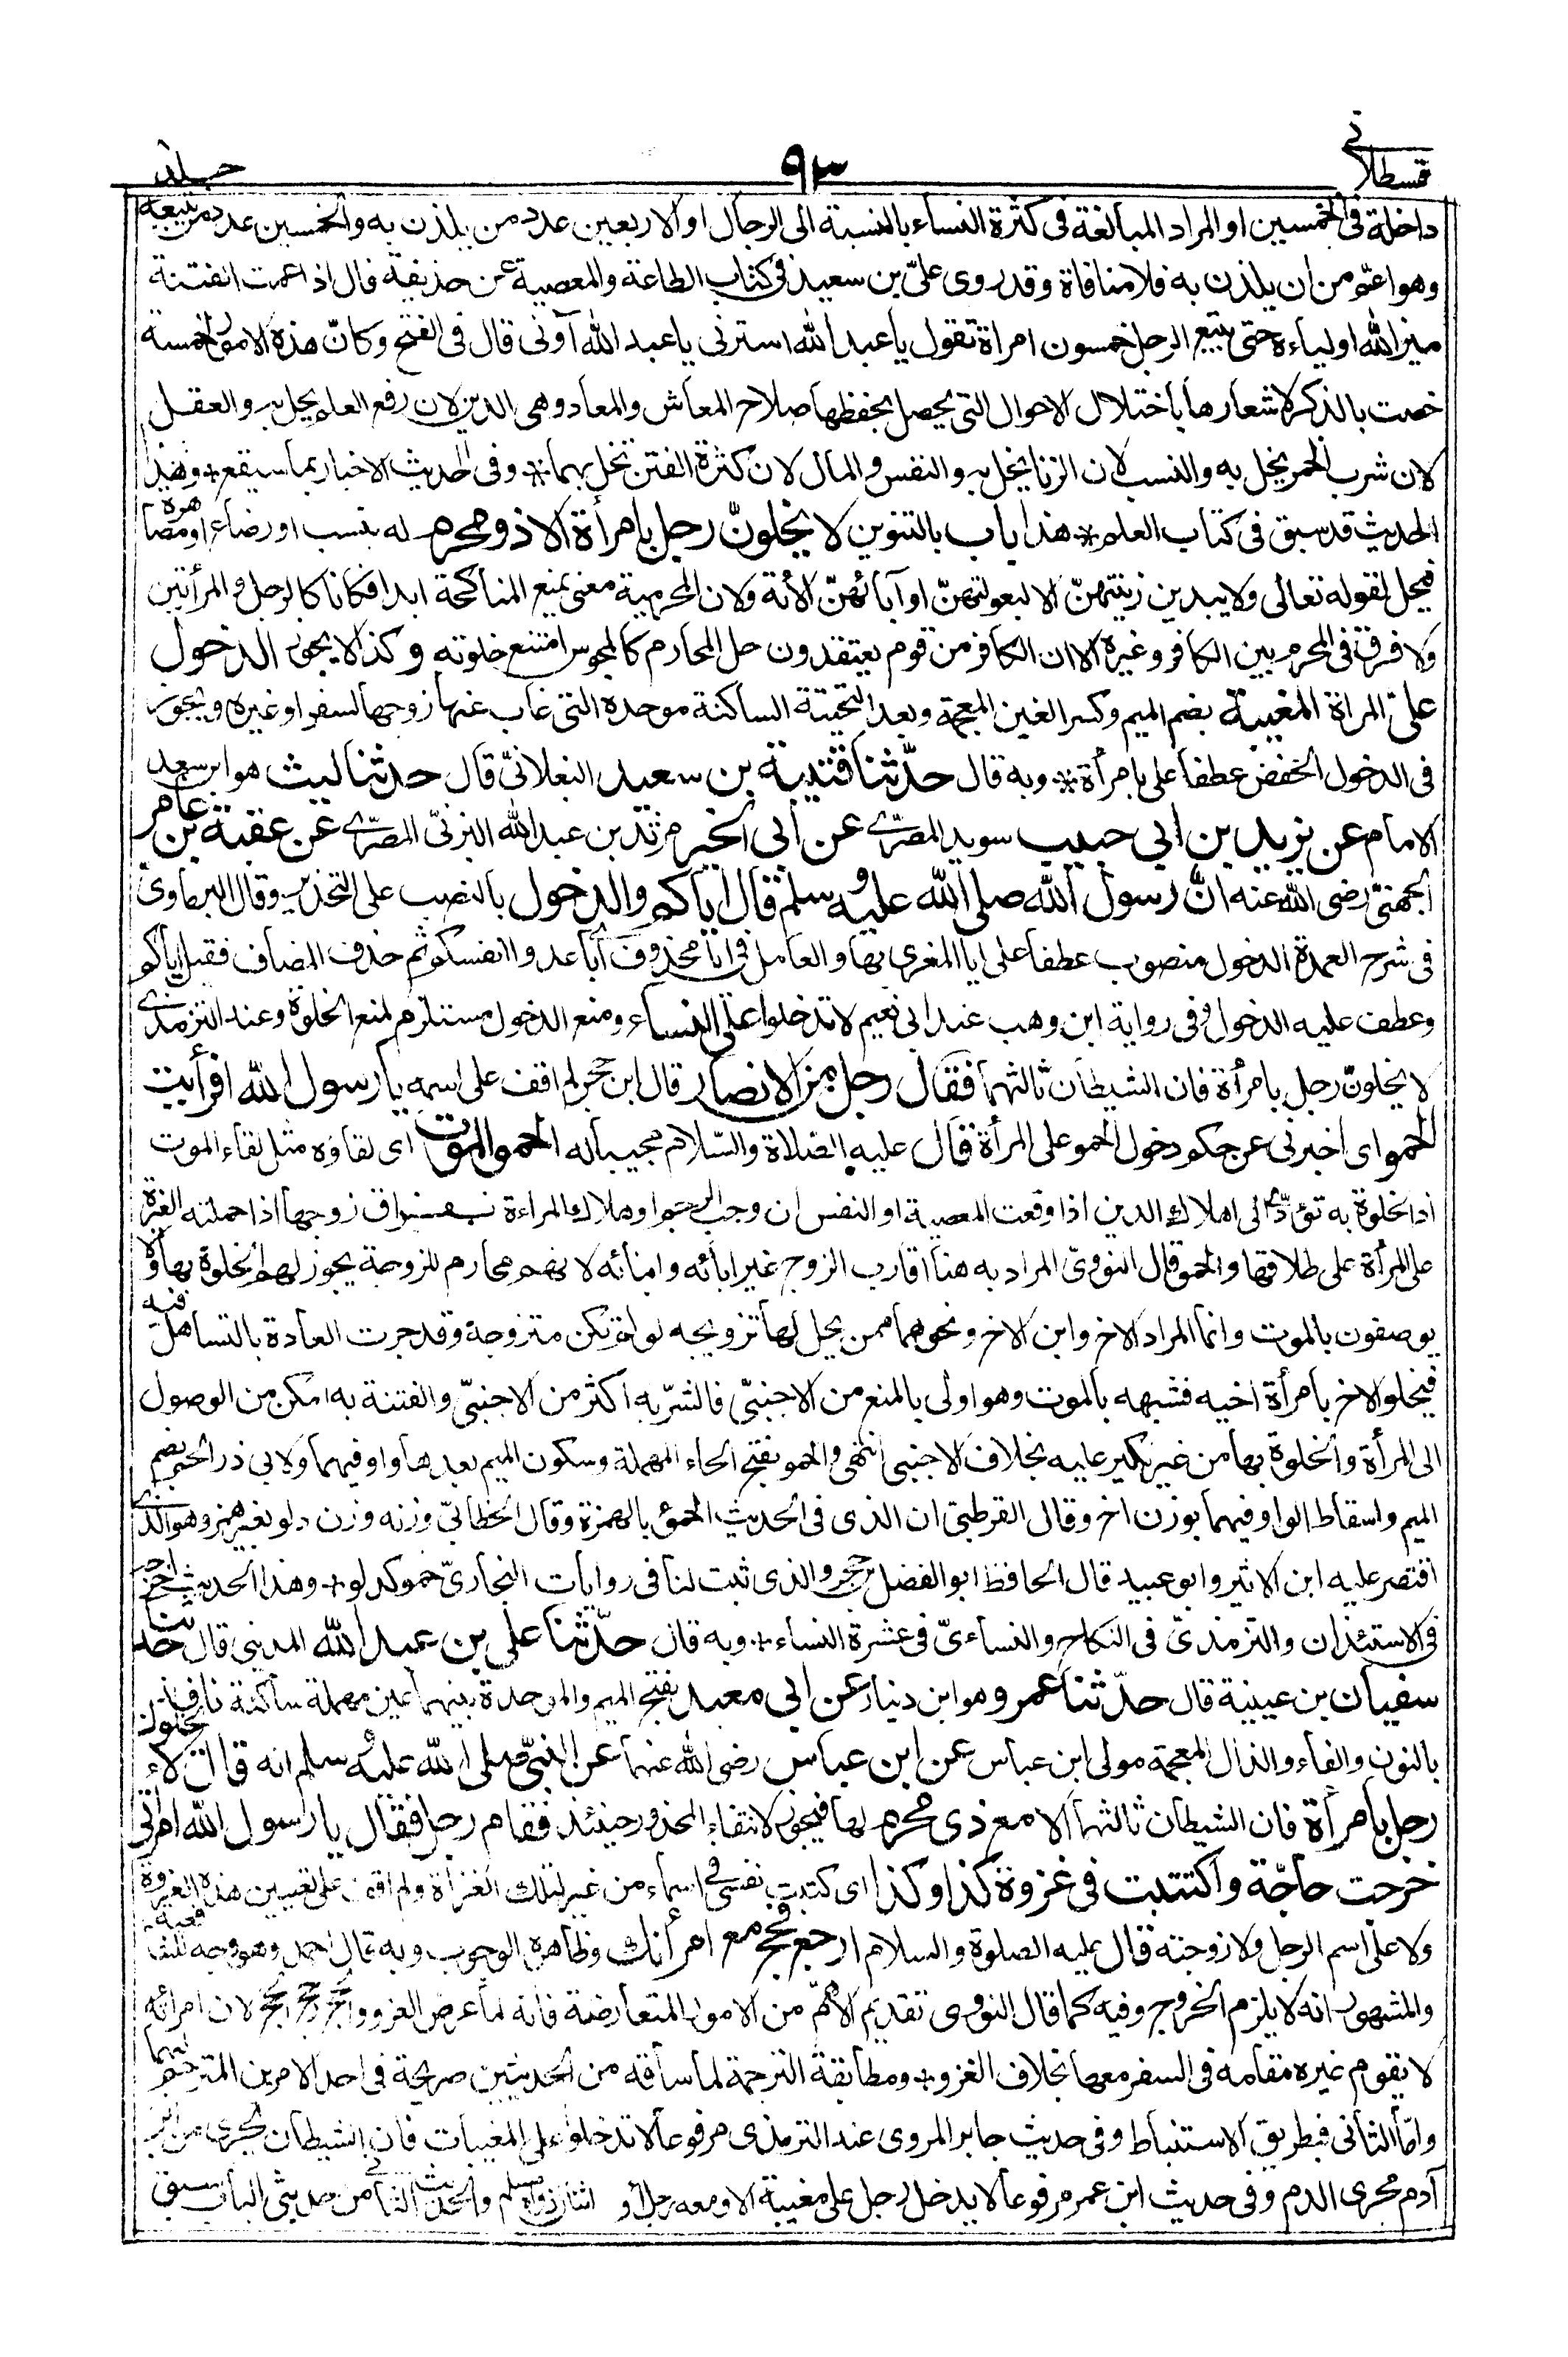 قسطلانی
٩٣
جلد
داخلة فى الخمسين او المراد المبالغة فى كثرة النساء بالنسبة الى الرجال او الاربعين عدد من يلذن به والخمسين عدد من يتبعه
وهو اعمّ من ان يلذن به فلا منافاة وقد روى علىّ بن سعيد فى كتاب الطاعة والمعصية عن حذيفة قال اذا عمت الفتنة
ميز الله اولياءه حتى يتبع الرجل خمسون امراة تقول يا عبد الله استرنى يا عبد الله آونى قال فى الفتح وكانّ هذه الامور الخمسة
خصت بالذكر لاشعارها باختلال الاحوال التى يحصل بحفظها صلاح المعاش والمعاد وهى الدين لان رفع العلم يخل به والعقل
لان شرب الخمر يخل به والنسب لان الزنا يخل به والنفس والمال لان كثرة الفتن تخل بهما * وفى الحديث الاخبار بما سيقع * وهذا
الحديث قد سبق فى كتاب العلم * هذا باب بالتنوين لا يخلونّ رجل بامرأة الا ذو محرم له بنسب او رضاع او مصاهرة
فيحل لقوله تعالى ولا يبدين زينتهنّ الا لبعولتهنّ او آبائهنّ الأية ولان المحرمية معنى يمنع المناكحة ابدا فكانا كالرجل والمرأتين
ولا فرق فى المحرم بين الكافر وغيره الا ان الكافر من قوم يعتقدون حل المحارم كالمجوس امتنع خلوته وكذا لا يجوز الدخول
على المراة المغيبة بضم الميم وكسر الغين المعجمة وبعد التحتية الساكنة موحدة التى غاب عنها زوجها لسفر او غيره ويجوز
فى الدخول الخفض عطفا على بامرأة * وبه قال حدّثنا قتيبة بن سعيد البغلانىّ قال حدثنا ليث هو ابن سعد
الامام عن يزيد بن ابي حبيب سويد المصرّى عن ابى الخير مرثد بن عبد الله اليزنىّ المصرّى عن عقبة بن عامر
الجهنىّ رضى الله عنه انّ رسول الله صلى الله عليه وسلم قال اياكم والدخول بالنصب على التحذير وقال البرماوى
فى شرح العمدة الدخول منصوب عطفا على ايا المغرى بها والعامل فى ايا محذوف أى باعدوا انفسكم ثم حذف المضاف فقيل اياكم
وعطف عليه الدخول وفى رواية ابن وهب عند ابى نعيم لا تدخلوا على النساء ومنع الدخول مستلزم لمنع الخلوة وعند الترمذى
لا يخلونّ رجل بامرأة فان الشيطان ثالثهما فقال رجل من الانصار قال ابن حجر لم اقف على اسمه يا رسول الله افرأيت
الحمو اى اخبرنى عن حكم دخول الحمو على المرأة قال عليه الصلاة والسّلام مجيبا له الحمو الموت اى لقاؤه مثل لقاء الموت
اذ الخلوة به تؤدّى الى اهلاك الدين اذا وقعت المعصية او النفس ان وجب الرجم او هلاك المراءة بفراق زوجها اذا حملته الغيرة
على المرأة على طلاقها والحمو قال النووىّ المراد به هنا اقارب الزوج غير ابائه وابنائه لانهم محارم للزوجة يجوز لهم الخلوة بها ولا
يوصفون بالموت وانما المراد الاخ وابن الاخ ونحوهما ممن يحل لها تزويجه لو لم تكن متزوجة وقد جرت العادة بالتساهل فيه
فيخلو الاخ بامرأة اخيه فشبهه بالموت وهو اولى بالمنع من الاجنبىّ فالشرّ به اكثر من الاجنبىّ والفتنة به امكن من الوصول
الى المرأة والخلوة بها من غير نكير عليه بخلاف الاجنبى انتهى والحمو بفتح الحاء المهملة وسكون الميم بعدها واو فيهما ولابي ذر الحم بضم
الميم واسقاط الواو فيهما بوزن اخ وقال القرطبى ان الذى فى الحديث الحمؤ بالهمزة وقال الخطابىّ وزنه وزن دلو بغير همز وهو الذى
اقتصر عليه ابن الاثير وابو عبيد قال الحافظ ابو الفضل بن حجر والذى ثبت لنا فى روايات البخارىّ حمو كدلو * وهذا الحديث اخرجه
فى الاستئذان والترمذىّ فى النكاح والنساءىّ فى عشرة النساء * وبه قال حدّثنا على بن عبد الله المدينى قال حدثنا
سفيان بن عيينة قال حدّثنا عمرو هو ابن دينار عن ابى معبد بفتح الميم والموحدة بينهما عين مهملة ساكنة نافذ
بالنون والفاء والذال المعجمة مولى ابن عباس عن ابن عباس رضى الله عنهما عن النبىّ صلى الله عليه وسلم انه قال لا يخلون
رجل بامرأة فان الشيطان ثالثهما الا مع ذى محرم لها فيجوز لانتفاء المحذور حينئذ فقام رجل فقال يا رسول الله امرأتى
خرجت حاجّة واكتتبت فى غزوة كذا وكذا اى كتبت نفسى فى اسماء من عين لتلك الغزاة ولم اقف على تعيين هذه الغزوة
ولا على اسم الرجل ولا زوجته قال عليه الصلوة والسلام ارجع فحج مع امرأتك وظاهره الوجوب وبه قال احمد وهو وجه للشافعية
والمشهور انه لا يلزم الخروج وفيه كما قال النووى تقديم الاهمّ من الامور المتعارضة فانه لما عرض الغزو والحج رجح الحج لان امرأته
لا يقوم غيره مقامه فى السفر معها بخلاف الغزو * ومطابقة الترجمة لما ساقه من الحديثين صريحة فى احد الامرين المترجم لهما
وامّا الثانى فبطريق الاستنباط وفى حديث جابر المروى عند الترمذى مرفوعا لا تدخلوا على المغيبات فان الشيطان يجرى من ابن
آدم مجرى الدم وفى حديث ابن عمر مرفوعا لا يدخل رجل على مغيبة الا ومعه رجل أو اثنان رواه مسلم والحديث الثانى من حديثى الباب سبق